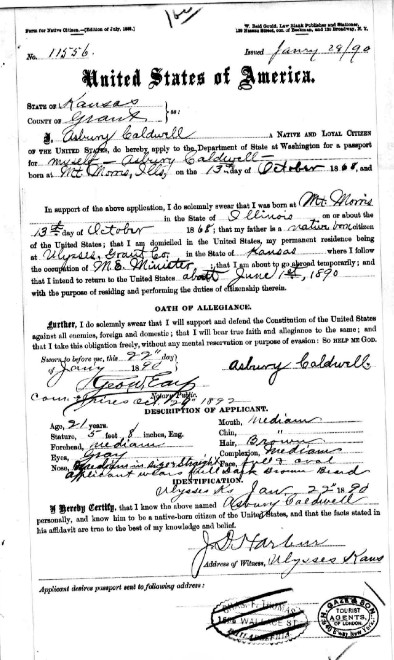 Form for Native Citizen.—(Edition of July, 1888.)
W. Reid Gould, Law Blank Publisher and Stationer,
No. 11556.
Issued Jan'ry 28/90
United States of America.
STATE OF Kansas
COUNTY OF Grant } ss:
I, Asbury Caldwell A NATIVE AND LOYAL CITIZEN
OF THE UNITED STATES, do hereby apply to the Department of State at Washington for a passport
for myself — Asbury Caldwell —
born at Mt Morris, Ills, on the 13th day of October 1868, and
In support of the above application, I do solemnly swear that I was born at Mt Morris
in the State of Illinois on or about the
13th day of October 1868; that my father is a native born citizen
of the United States; that I am domiciled in the United States, my permanent residence being
at Ulysses, Grant Co, in the State of Kansas where I follow
the occupation of M.E. Minister; that I am about to go abroad temporarily; and
that I intend to return to the United States about June 1st, 1890
with the purpose of residing and performing the duties of citizenship therein.
OATH OF ALLEGIANCE.
Further, I do solemnly swear that I will support and defend the Constitution of the United States
against all enemies, foreign and domestic; that I will bear true faith and allegiance to the same; and
that I take this obligation freely, without any mental reservation or purpose of evasion: SO HELP ME GOD.
Sworn to before me, this 22nd day
of Jan'y 1890
Asbury Caldwell
Notary Public.
Com. expires Oct 1892
DESCRIPTION OF APPLICANT.
Age, 21 years. Mouth, Medium
Stature, 5 feet 8 inches, Eng. Chin, "
Forehead, Medium Hair, Brown
Eyes, Gray Complexion, Medium
Nose, Medium in size Straight Face, full & oval
Applicant wears full Dark Brown Beard
IDENTIFICATION.
Ulysses Ks Jan 22nd 1890
I Hereby Certify, that I know the above named Asbury Caldwell
personally, and know him to be a native-born citizen of the United States, and that the facts stated in
his affidavit are true to the best of my knowledge and belief.
Address of Witness, Ulysses Kans
Applicant desires passport sent to following address:
CHAS. F. THOMAS
WALLACE ST
PHILADELPHIA
H. GAZE & SON
TOURIST
AGENTS,
OF LONDON.